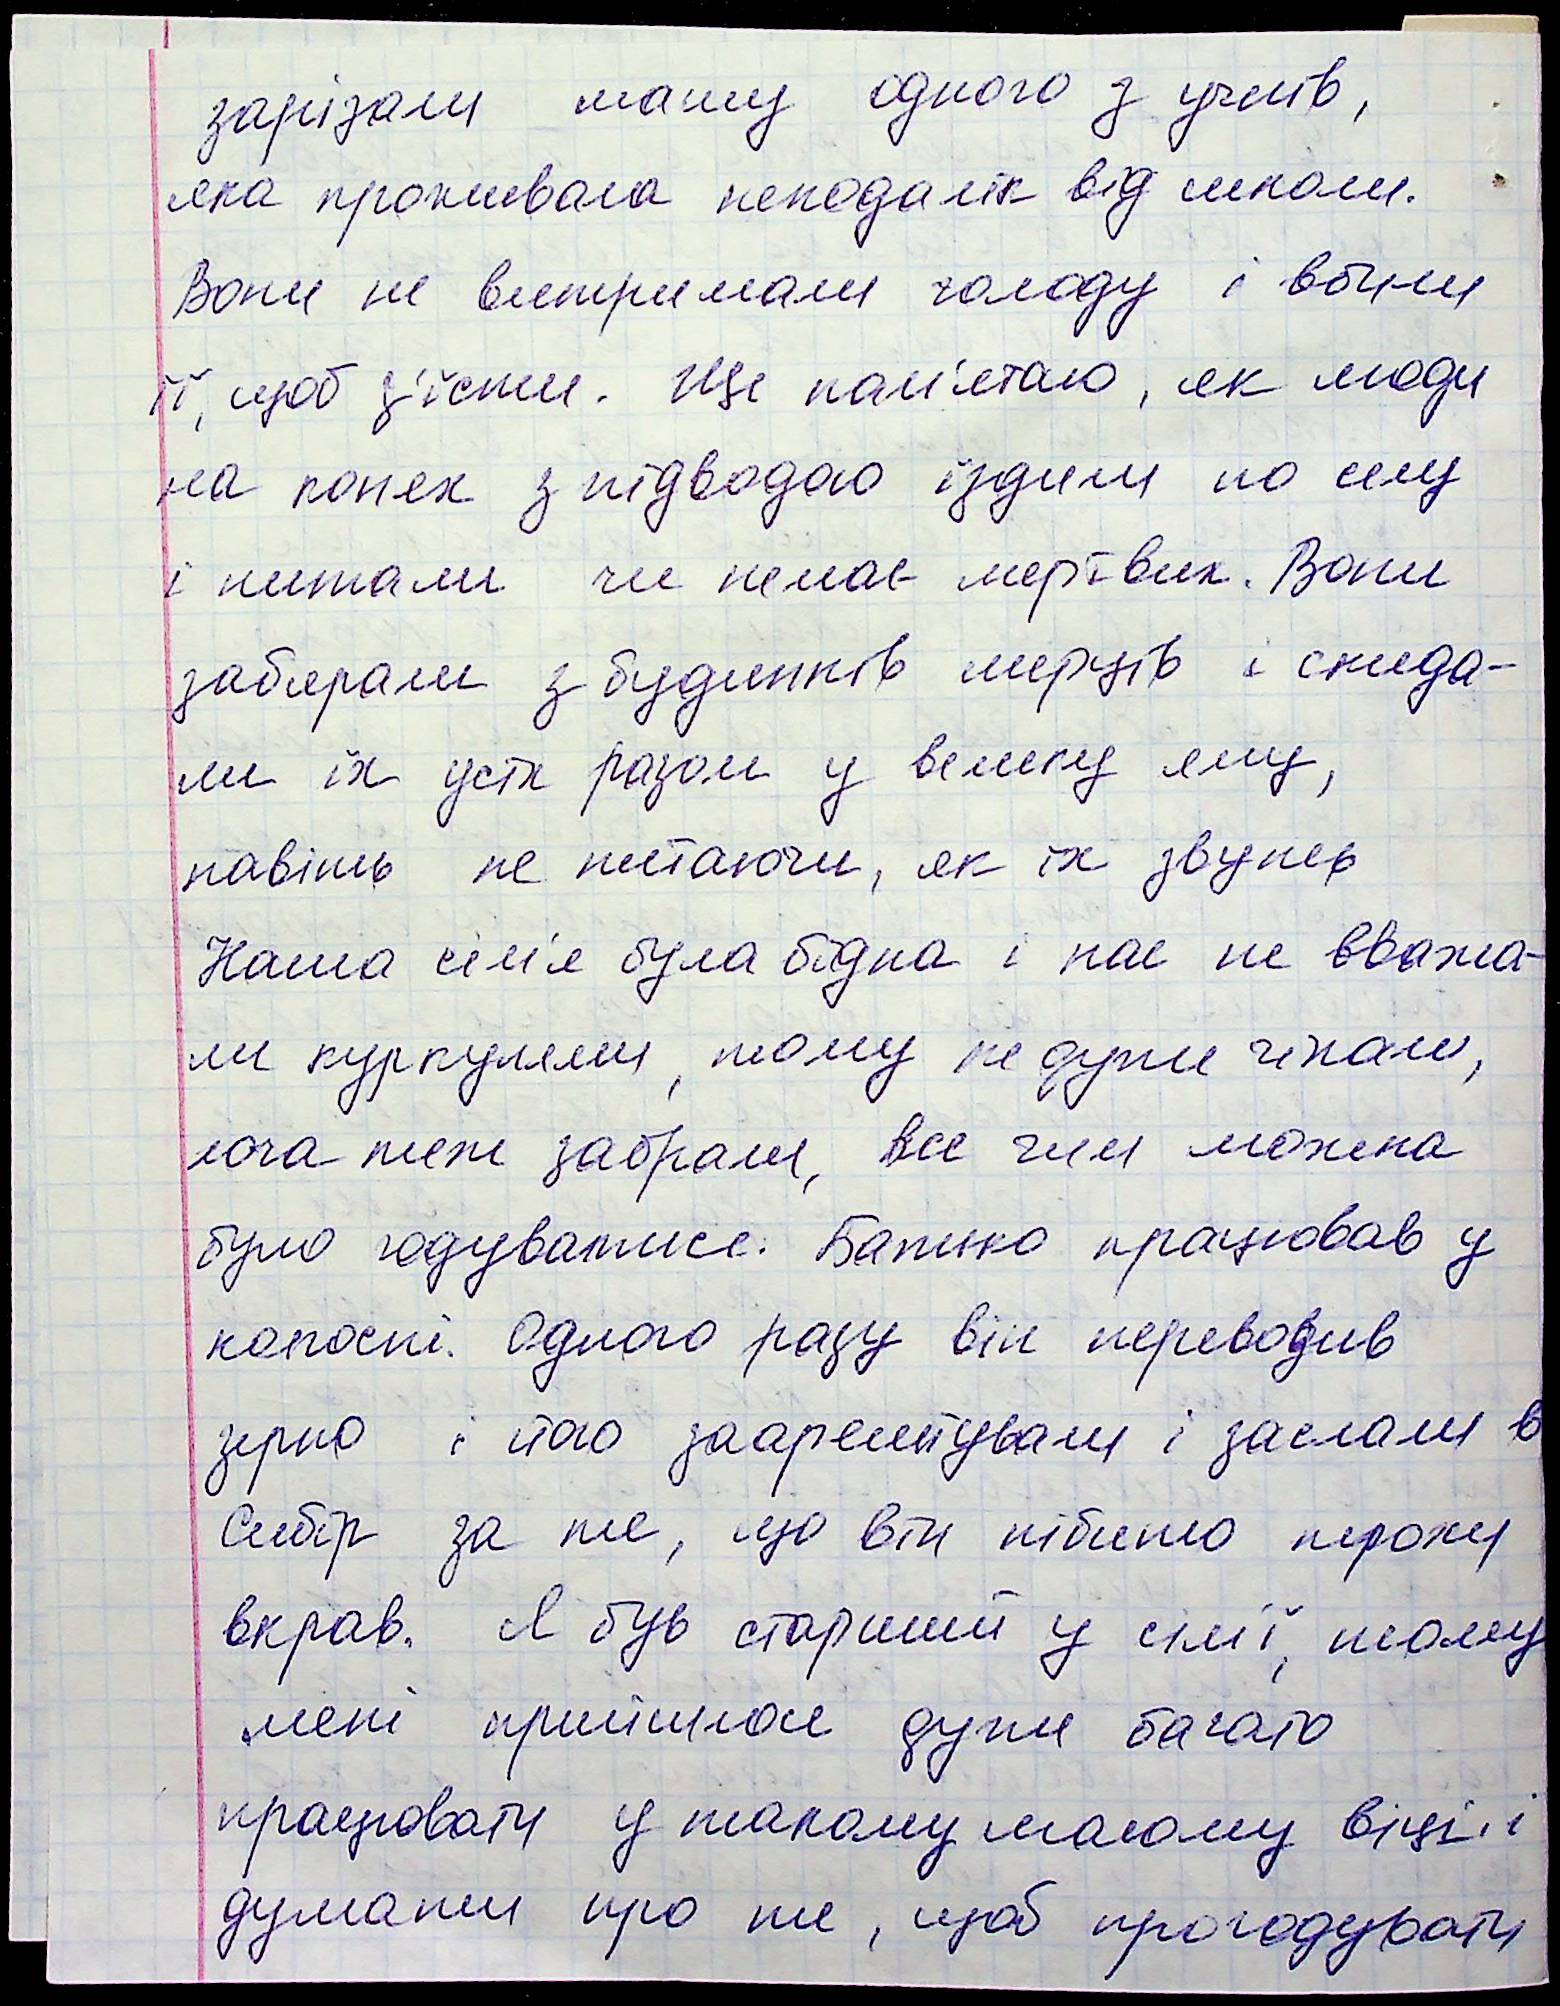 зарізали маму одного з учнів,
яка проживала неподалік від школи.
Вони не витримали голоду і вбили
її, щоб з'їсти. Ще пам'ятаю, як люди
на конях з підводою їздили по селу
і питали чи немає мертвих. Вони
забирали з будинків мерців і скида-
ли їх усіх разом у велику яму,
навіть не питаючи, як їх звуть
Наша сім'я була бідна і нас не вважа-
ли куркулями, тому не дуже чіпали,
хоча теж забрали, все чим можна
було годуватися. Батько працював у
колгоспі. Одного разу він переводив
зерно і його заарештували і заслали в
Сибір за те, що він нібито трохи
вкрав. Я був старший у сім'ї, тому
мені прийшлося дуже багато
працювати у такому малому віці і
думати про те, щоб прогодувати